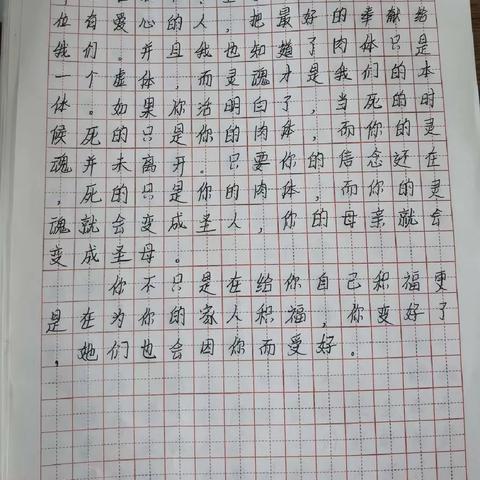 位有爱心的人，把最好的奉献给
我们。并且我也知道了肉体只是
一个虚体，而灵魂才是我们的本
体。如果你活明白了，当死的时
候死的只是你的肉体，而你的灵
魂并未离开。只要你的信念还在
，死的只是你的肉体，而你的灵
魂就会变成圣人，你的母亲就会
变成圣母。
你不只是在给你自己积福更
是在为你的家人积福，你变好了
，她们也会因你而受好。